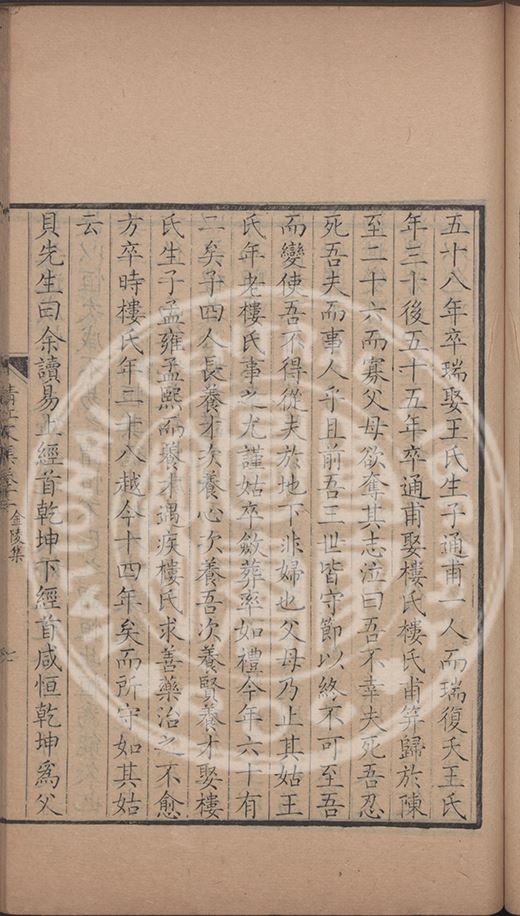 五十八年卒瑞娶王氏生子通甫一人而瑞復夭王氏
年三十後五十五年卒通甫娶樓氏樓氏甫笄歸於陳
至二十六而寡父母欲奪其志泣曰吾不幸夫死吾忍
死吾夫而事人乎且前吾三世皆守節以終不可至吾
而變使吾不得從夫於地下非婦也父母乃止其姑王
氏年老樓氏事之尤謹姑卒斂葬率如禮今年六十有
二矣子四人長養才次養心次養吾次養賢養才娶樓
氏生子孟雍孟熙而養才遇疾樓氏求善藥治之不愈
方卒時樓氏年三十八越今十四年矣而所守如其姑
云
貝先生曰余讀易上經首乾坤下經首咸恒乾坤為父
清江文集卷
金陵集